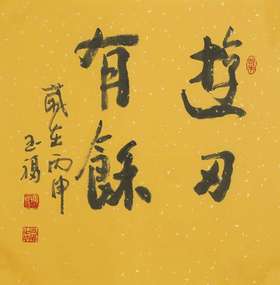 遊刃
有餘
歲在丙申
玉